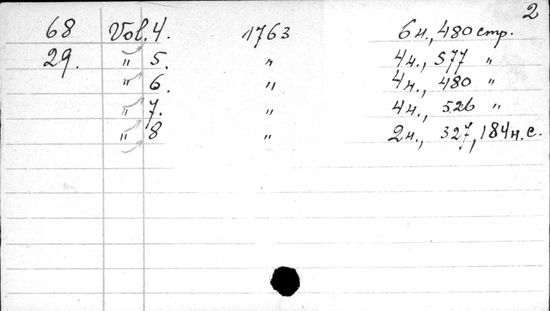 2
68 Vol. 4. 1763 6 н., 480 стр.
29. " 5. " 4 н., 577 "
" 6. " 4 н., 480 "
" 7. " 4 н., 526 "
" 8 " 2 н., 327, 184 н. с.